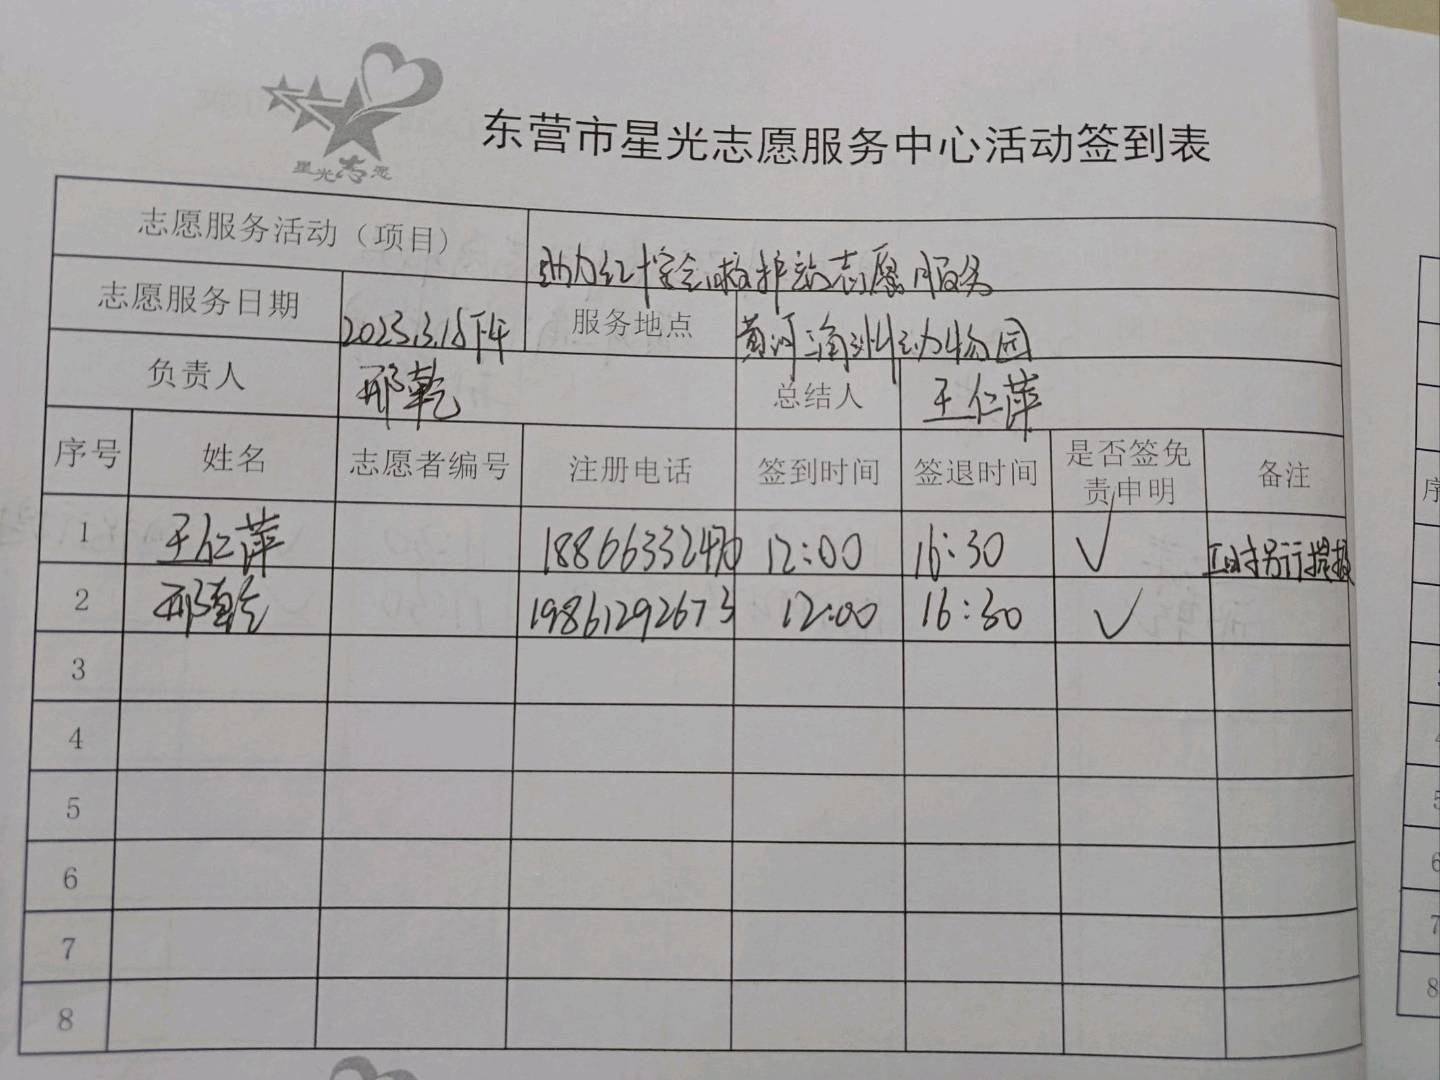 星光志愿
东营市星光志愿服务中心活动签到表
志愿服务活动（项目） 助力红十字会救护站志愿服务
志愿服务日期 2023.3.18下午 服务地点 黄河三角洲动物园
负责人 邢乾 总结人 王仁萍
序号 姓名 志愿者编号 注册电话 签到时间 签退时间 是否签免责申明 备注
1 王仁萍 18866332470 12:00 16:30 ✓
2 邢乾 19861292673 12:00 16:30 ✓
3
4
5
6
7
8